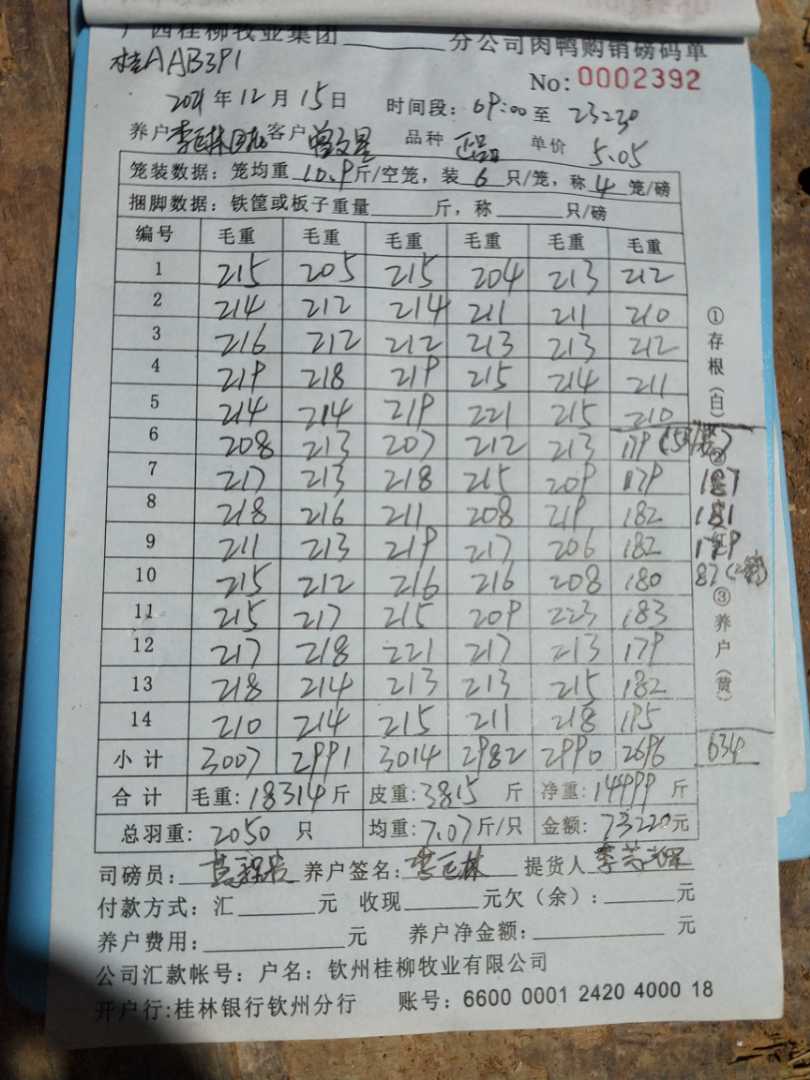 广西桂柳牧业集团 分公司肉鸭购销磅码单
桂AAB391
No: 0002392
2021年12月15日 时间段: 69:00至 23230
养户 客户 曾文星 品种 正品 单价 5.05
笼装数据: 笼均重 10.9 斤/空笼, 装 6 只/笼, 称 4 笼/磅
捆脚数据: 铁筐或板子重量 斤, 称 只/磅
编号 毛重 毛重 毛重 毛重 毛重 毛重
1 215 205 215 204 213 212
2 214 212 214 211 211 210
3 216 212 212 213 213 212
4 219 218 219 215 214 211
5 214 214 219 221 215 210
6 208 213 207 212 213 179
7 217 213 218 215 209 179 187
8 218 216 211 208 219 182 181
9 211 213 219 217 206 182 179
10 215 212 216 216 208 180 87
11 215 217 215 209 223 183
12 217 218 221 217 213 179
13 218 214 213 213 215 182
14 210 214 215 211 218 195
小计 3007 2991 3014 2982 2990 2696 634
合计 毛重: 18314 斤 皮重: 3815 斤 净重: 14499 斤
总羽重: 2050 只 均重: 7.07 斤/只 金额: 73220 元
司磅员: 养户签名: 李正林 提货人
付款方式: 汇 元 收现 元欠(余): 元
养户费用: 元 养户净金额: 元
公司汇款帐号: 户名: 钦州桂柳牧业有限公司
开户行:桂林银行钦州分行 账号: 6600 0001 2420 4000 18
①存根(白)
③养户(黄)